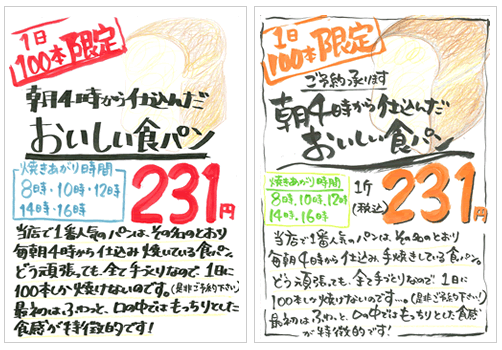 1日
100本限定
朝4時から仕込んだ
おいしい食パン
焼きあがり日時間
8時・10時・12時
14時・16時
231円
当店で1番人気のパンは、その名のとおり
毎朝4時から仕込み焼いている食パン。
どう頑張っても、全て手づくりなので1日に
100本しか焼けないのです。(是非ご予約下さい)
最初はふわっと、口の中ではもっちりとした
食感が特徴的です!
1日
100本限定
ご予約承ります
朝4時から仕込んだ
おいしい食パン
焼きあがり時間
8時、10時、12時
14時、16時
1斤
(税込)
231円
当店で1番人気のパンは、その名のとおり
毎朝4時から仕込み、手焼きしている食パン。
どう頑張っても、全て手づくりなので1日に
100本しか焼けないのです…。(是非ご予約下さい!)
最初はふわっと、口の中ではもっちりとした食感
が特徴的です!